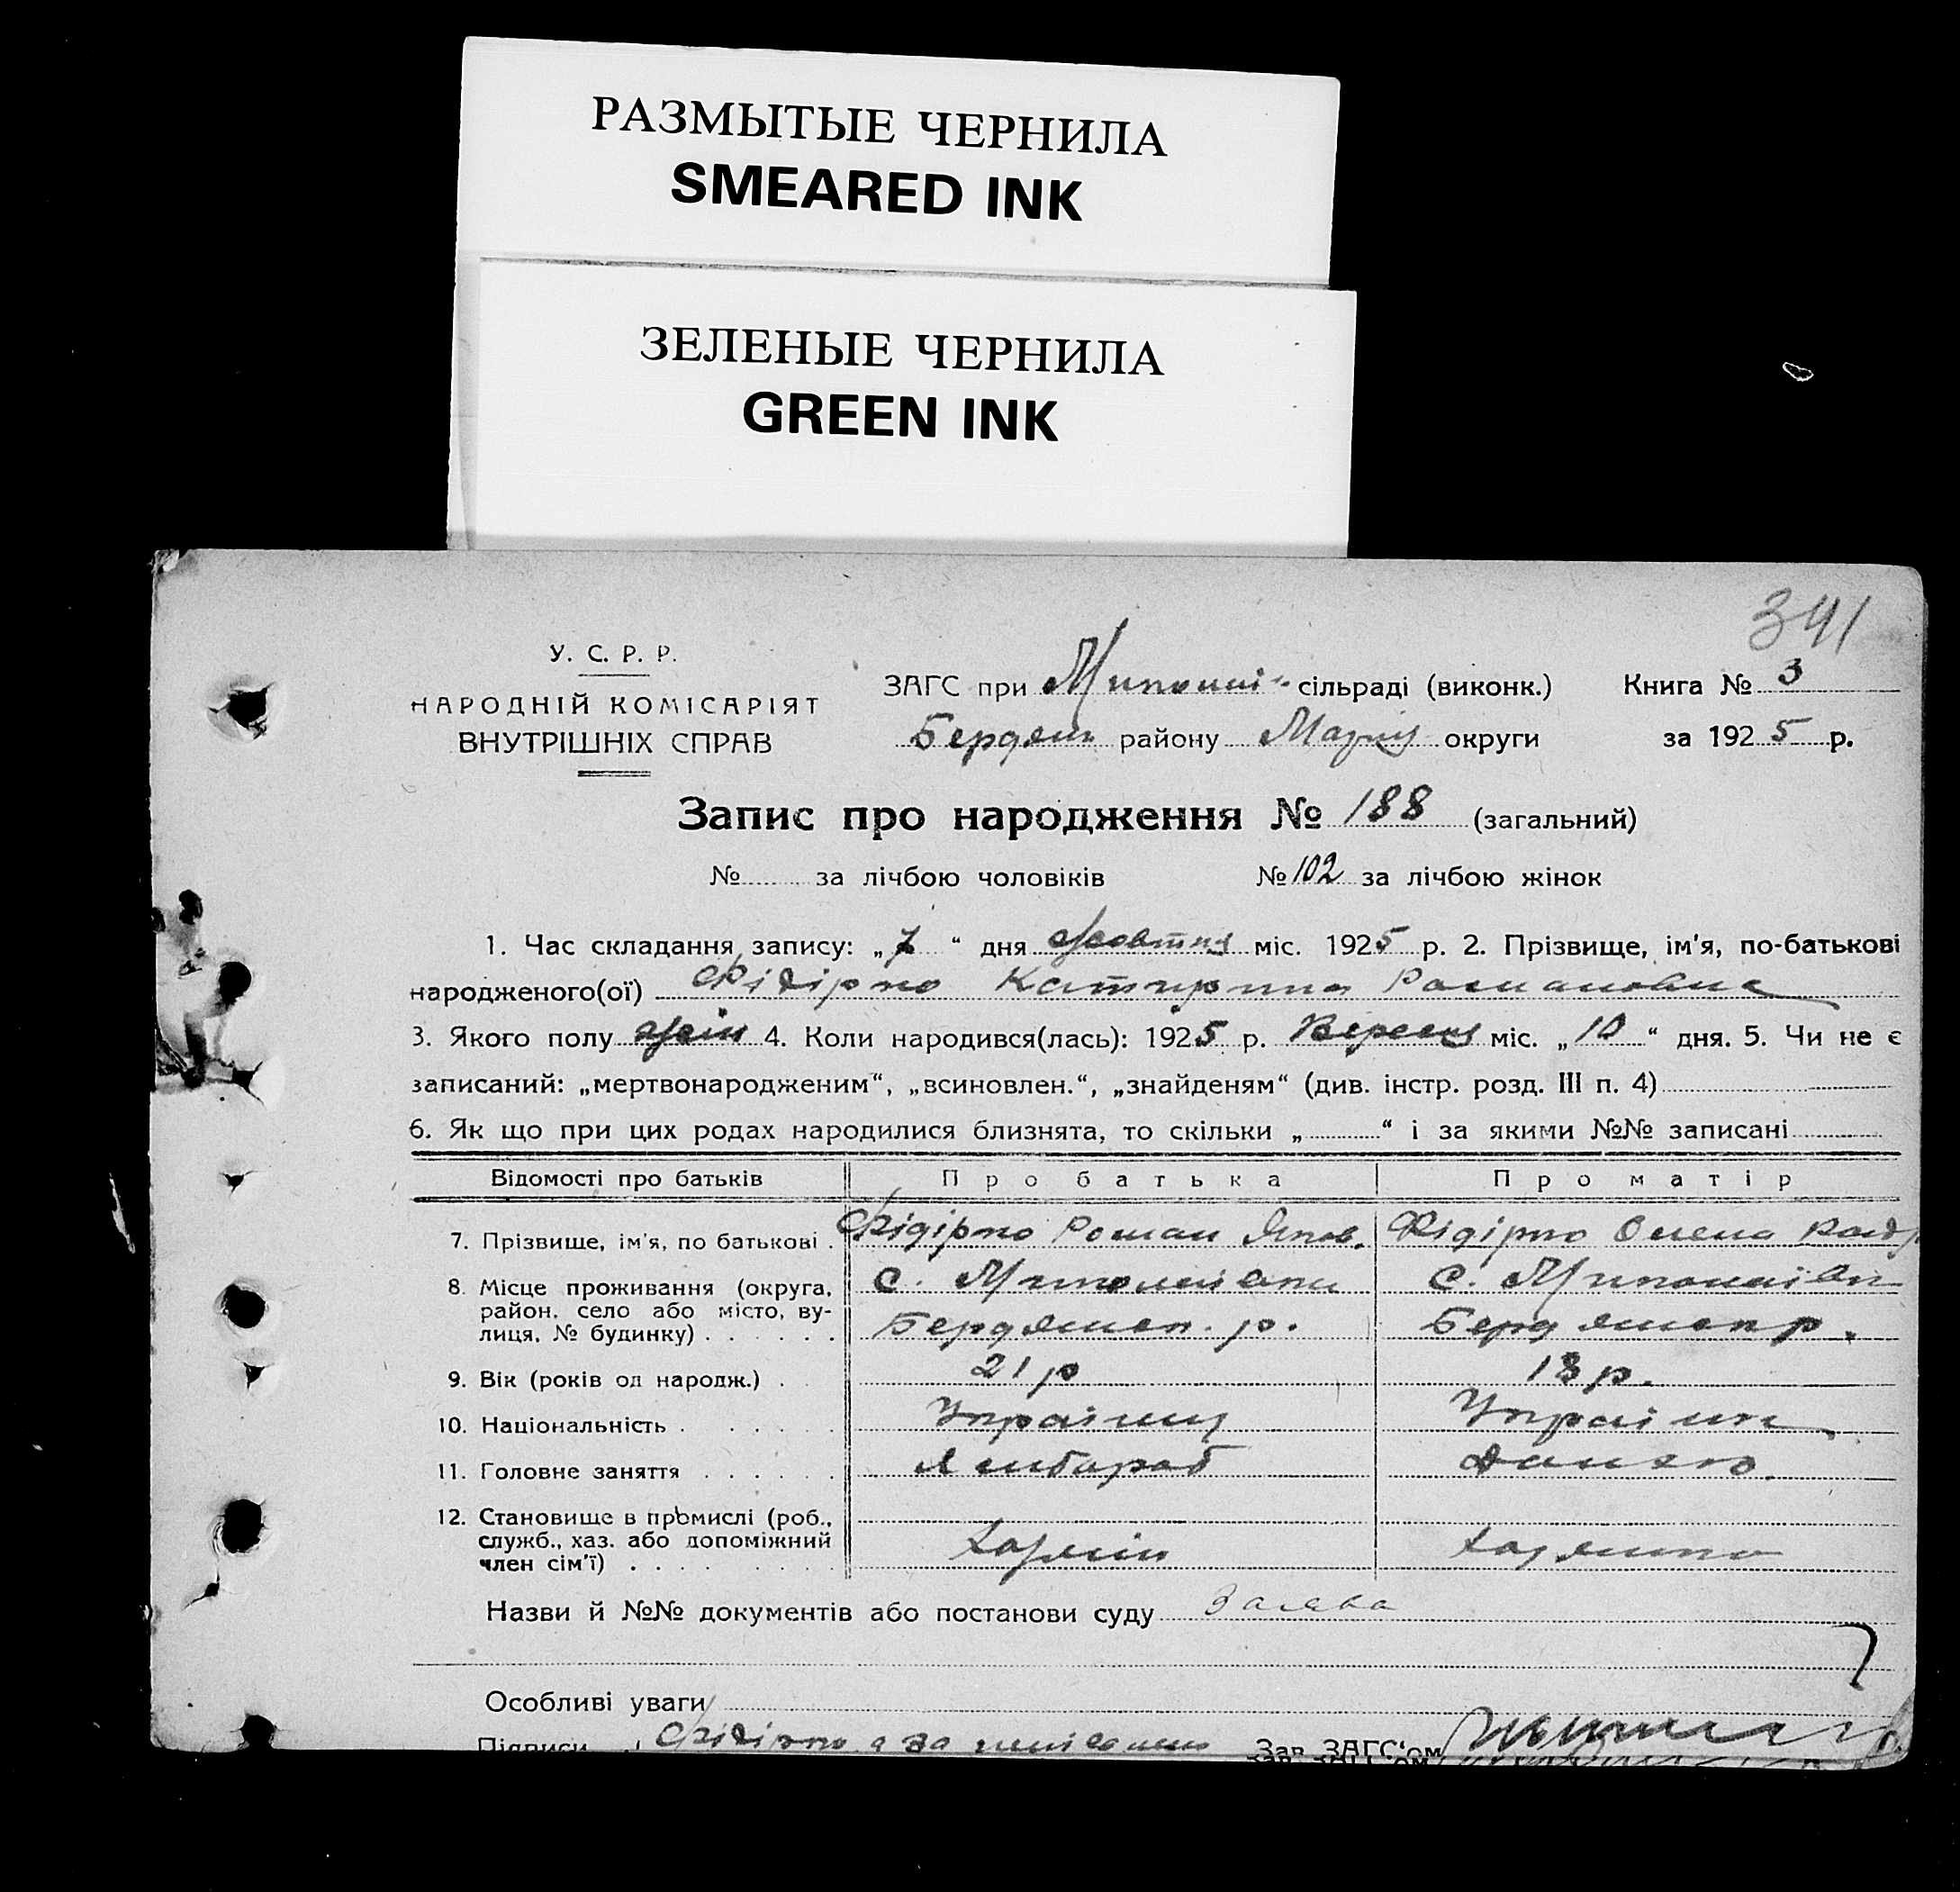 РАЗМЫТЫЕ ЧЕРНИЛА
SMEARED INK
ЗЕЛЕНЫЕ ЧЕРНИЛА
GREEN INK
341
У. С. Р. Р.
НАРОДНІЙ КОМІСАРІЯТ
ВНУТРІШНІХ СПРАВ
ЗАГС при сільраді (виконк.) Книга № 3
Бердян району Маріуп округи за 1925 р.
Запис про народження № 188 (загальний)
№ за лічбою чоловіків № 102 за лічбою жінок
1. Час складання запису: „7“ дня Жовтня міс. 1925 р. 2. Прізвище, ім'я, по-батькові
народженого(ої) Фідірко Катирина Романовна
3. Якого полу жін 4. Коли народився(лась): 1925 р. Вересня міс. „10“ дня. 5. Чи не є
записаний: „мертвонародженим“, „всиновлен.“, „знайденям“ (див. інстр. розд. III п. 4)
6. Як що при цих родах народилися близнята, то скільки „ “ і за якими №№ записані
Відомості про батьків Про батька Про матір
7. Прізвище, ім'я, по батькові . Фідірко Роман Яков. Фідірко Олена
8. Місце проживання (округа, район, село або місто, вулиця, № будинку) . . . . . . с. Миколаївки Бердянск. р. с. Миколаївк Бердянск р.
9. Вік (років од народж.) . 21 р 18 р.
10. Національність . . . . . . Українц Українк
11. Головне заняття . . . . . . Хлібороб Домаш.
12. Становище в промислі (роб., служб., хаз. або допоміжний член сім'ї) . . . . . . Хазяїн Хазяйка
Назви й №№ документів або постанови суду Заява
Особливі уваги
Підписи Фідірко Зав. ЗАГС'ом